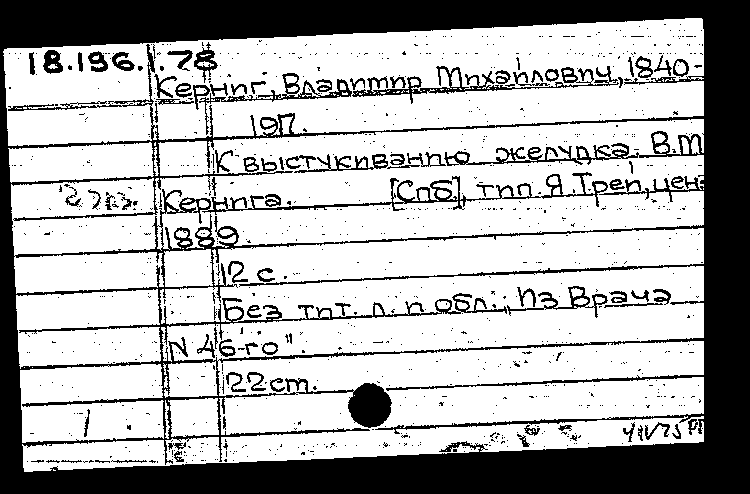 18.196.1.78
Керниг, Владимир Михайлович, 1840-
1917.
К выстукиванию желудка. В.М
Кернига. [Спб], тип. Я.Трей, ценз
2 экз.
1889.
12 с.
Без тит. л. и обл. „Из Врача
N 46-го".
22 cm.